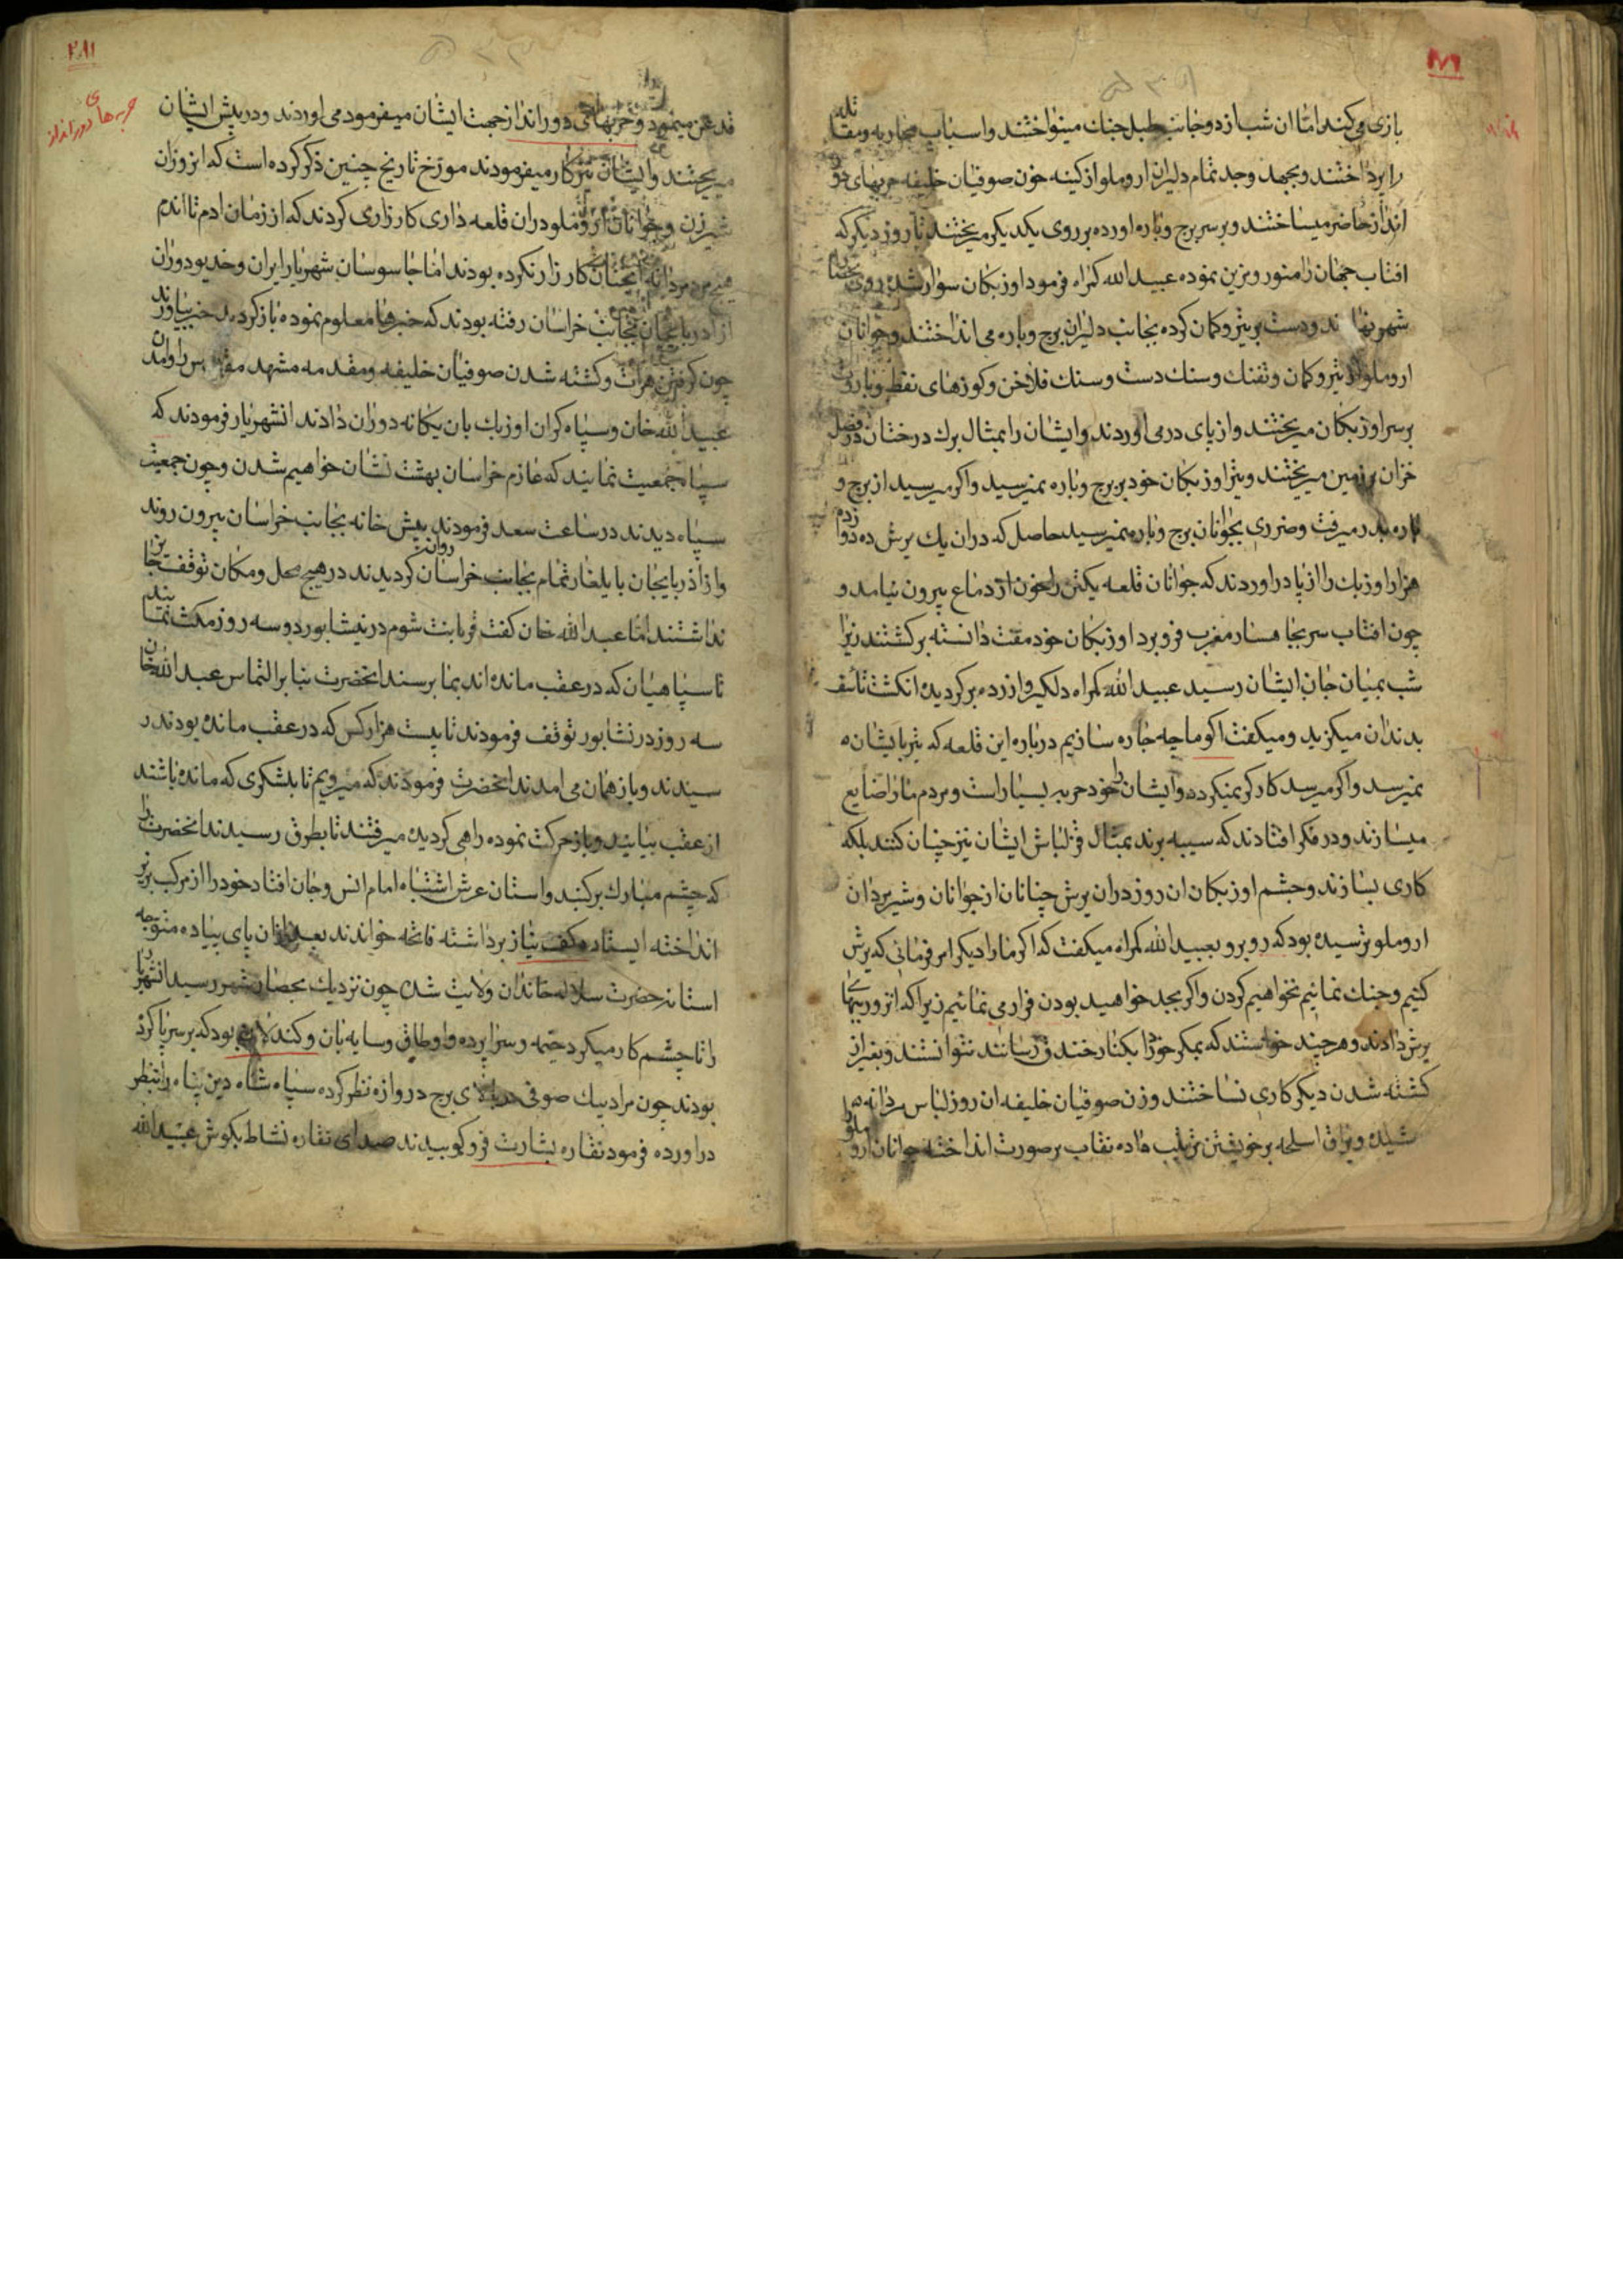 بازی می کند اما ان شب از دو جانب طبل جنك مینواختند و اسباب محاربه و مقاتله
را پرداختند و بجهد و جد تمام دلیران اروملو از کینه خون صوفیان خلیفه حربهای دور
انداز حاضر میساختند و بر سر برج و باره اورده بر روی یکدیکر میریختند تا روز دیکر که
افتاب جهان را منور و مزین نموده عبید الله کمراه فرمود اوزبکان سوار شده روی بحصار
شهر نها ند و دست بر تیر و کمان کرده بجانب دلیران برج و باره می انداختند و جوانان
اروملو از تیر و کمان و تفنك و سنك دست و سنك فلاخن و کوزهای نفط و باروت
بر سر اوزبکان میریختند و از پای در می اوردند و ایشان را بمثال برك درختان در فصل
خزان بر زمین میریختند و تیر اوزبکان خود بر برج و باره نمیرسید و اکر میرسید از برج و
باره بدر میرفت و ضرری بجوانان برج و باره نمیرسید حاصل که دران یك یرش ده دوازده
هزار اوزبك را از پا در اوردند که جوانان قلعه یکتن را خون از دماغ بیرون نیامد و
چون افتاب سر بجاهسار مغرب فرو برد اوزبکان خود مفت دانسته برکشتند زیرا
شب بمیان جان ایشان رسید عبید الله کمراه دلکیر و ازرده برکردیده انکشت تاسف
بدندان میکزید و میکفت اکو ما چه چاره سازیم در باره این قلعه که تیر بایشان
نمیرسد و اکر میرسد کارکر نمیکردد و ایشان را خود حربه بسیار است و مردم ما را ضایع
میسازند و در فکر افتادند که سیبه برند بمثال قزلباش ایشان نیز چنان کنند بلکه
کاری بسازند و چشم اوزبکان ان روز دران یرش چنانان از جوانان و شیرمردان
اروملو ترسیده بود که روبرو بعبید الله کمراه میکفت که اکر ما را دیکر امر فرمائی که یرش
کنیم و جنك نمائیم نخواهیم کردن و اکر بجد خواهید بودن فرار می نمائیم زیرا که انروز
یرش دادند و هر چند خواستند که یمکر خود را بکنار خندق رسانند نتوانستند و بغیر از
کشته شدن دیکر کاری نساختند و زن صوفیان خلیفه ان روز لباس مردانه
و یراق اسلحه بر خویشتن ترتیب داده نقاب بر صورت انداخته جوانان اروملو را
۲۸۱
حربه های دور انداز
قدغن مینمود و حربهای دور انداز جهت ایشان میفرمود می اوردند و در پیش ایشان
میریختند و ایشان نیز کار میفرمودند مورخ تاریخ چنین ذکر کرده است که انروز ان
شیرزن و جوانان اروملو دران قلعه داری کارزاری کردند که از زمان ادم تا اندم
هیچ مرد مردانه انچنان کارزار نکرده بودند اما جاسوسان شهریار ایران و خدیو دوران
از اذربایجان بجانب خراسان رفته بودند که خبرها معلوم نموده باز کردید خبر بیاورند
چون کرفتن هرات و کشته شدن صوفیان خلیفه و مقدمه مشهد مقدس و امدن
عبید الله خان و سپاه کران اوزبك بان یکانه دوران دادند انشهریار فرمودند که
سپاه جمعیت نمایند که عازم خراسان بهشت نشان خواهیم شدن و چون جمعیت
سپاه دیدند در ساعت سعد فرمودند پیش خانه بجانب خراسان بیرون روند
و از اذربایجان بایلغار تمام بجانب خراسان روان کردیدند در هیچ محل و مکان توقف جایز
نداشتند اما عبد الله خان کفت قربانت شوم در نیشابور دو سه روز مکث نمائید
تا سپاهیان که در عقب مانده اند بما برسند انحضرت بنا بر التماس عبد الله خان
سه روز در نشابور توقف فرمودند تا بیست هزار کس که در عقب مانده بودند ر
سیدند و باز همان می امدند انحضرت فرمودند که میرویم تا بلشکری که مانده باشند
از عقب بیایند و باز حرکت نموده راهی کردیده میرفتند تا بطرق رسیدند انحضرت را
که چشم مبارك بر کنبد و استان عرش اشتباه امام انس و جان افتاد خود را از مرکب بزیر
انداخته ایستاده کف نیاز برداشته فاتحه خواندند بعد ازان پای پیاده متوجه
استانه حضرت سلاله خاندان ولایت شده چون نزدیك بحصار شهر رسید انشهریار
را تا چشم کار میکرد خیمه و سراپرده و اوطاق و سایه بان و کندلان بود که بر سر پا کرده
بودند چون مراد بیك صوفی در بالای برج دروازه نظر کرده سپاه شاه دین پناه را بنظر
در اورده فرمود نقاره بشارت فرو کوبیدند صدای نقاره نشاط بکوش عبید الله